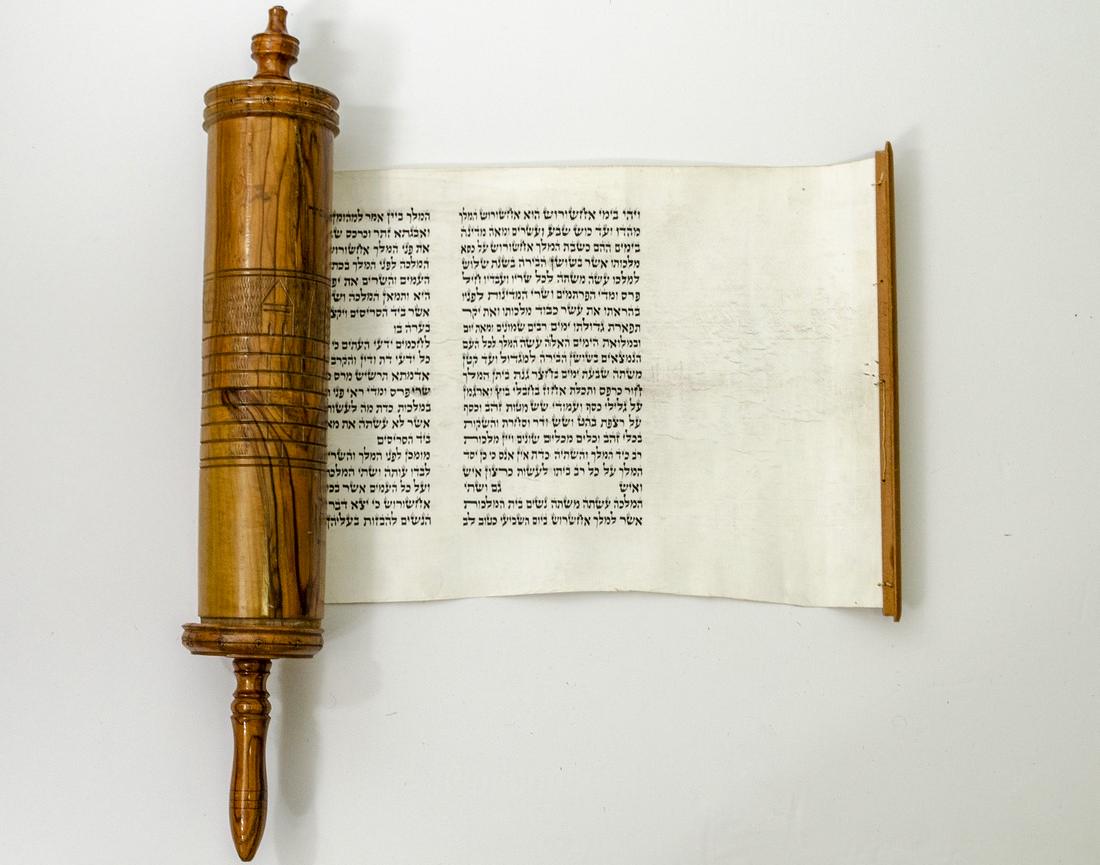 ויהי בימי אחשורוש הוא אחשורוש המלך
מהדו ועד כוש שבע ועשרים ומאה מדינה
בימים ההם כשבת המלך אחשורוש על כסא
מלכותו אשר בשושן הבירה בשנת שלוש
למלכו עשה משתה לכל שריו ועבדיו חיל
פרס ומדי הפרתמים ושרי המדינות לפניו
בהראתו את עשר כבוד מלכותו ואת יקר
תפארת גדולתו ימים רבים שמונים ומאת יום
ובמלואת הימים האלה עשה המלך לכל העם
הנמצאים בשושן הבירה למגדול ועד קטן
משתה שבעת ימים בחצר גנת ביתן המלך
חור כרפס ותכלת אחוז בחבלי בוץ וארגמן
על גלילי כסף ועמודי שש מטות זהב וכסף
על רצפת בהט ושש ודר וסחרת והשקות
בכלי זהב וכלים מכלים שונים ויין מלכות
רב כיד המלך והשתיה כדת אין אנס כי כן יסד
המלך על כל רב ביתו לעשות כרצון איש
ואיש גם ושתי
המלכה עשתה משתה נשים בית המלכות
אשר למלך אחשורוש ביום השביעי כטוב לב
המלך ביין אמר למהומן
ואבגתא זתר וכרכס
את פני המלך אחשורוש
המלכה לפני המלך בכתר
העמים והשרים את
היא ותמאן המלכה
אשר ביד הסריסים
בערה בו
לחכמים ידעי העתים כי
כל ידעי דת ודין והקרב
אדמתא תרשיש מרס
שרי פרס ומדי ראי פני
במלכות כדת מה לעשות
אשר לא עשתה את
ביד הסריסים
מומכן לפני המלך והשרים
לבדו עותה ושתי המלכה
ועל כל העמים אשר
אחשורוש כי יצא דבר
הנשים להבזות בעליהן